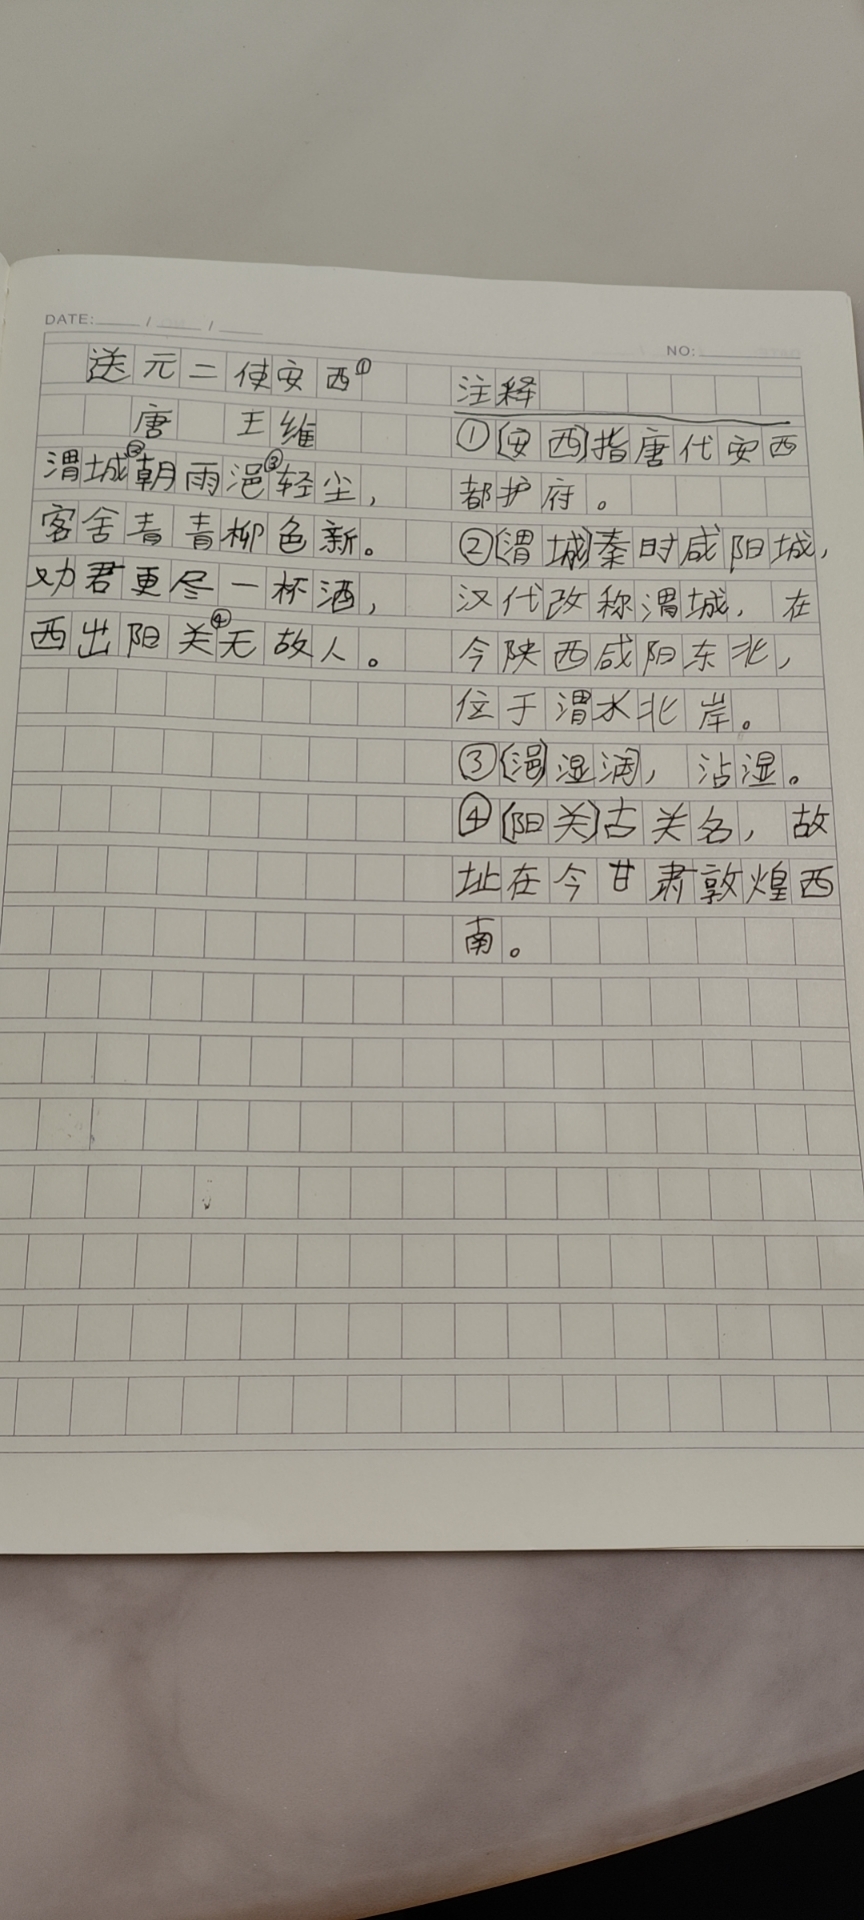 DATE: / /
NO:
送元二使安西①
唐 王维
渭城②朝雨浥③轻尘，
客舍青青柳色新。
劝君更尽一杯酒，
西出阳关④无故人。
注释
①〔安西〕指唐代安西
都护府。
②〔渭城〕秦时咸阳城，
汉代改称渭城，在
今陕西咸阳东北，
位于渭水北岸。
③〔浥〕湿润，沾湿。
④〔阳关〕古关名，故
址在今甘肃敦煌西
南。